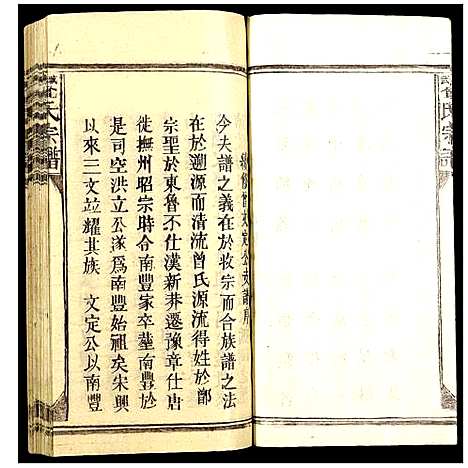 曾文定公支譜序
今夫譜之義在於收宗而合族譜之法
在於遡源而清流曾氏源流得姓於鄫
宗聖於東魯不仕漢新莽遷豫章仕唐
徙撫州昭宗時令南豐家卒塟南豐於
是司空洪立公遂爲南豐始祖矣宋興
以來三文竝耀其族 文定公以南豐
氏宗譜